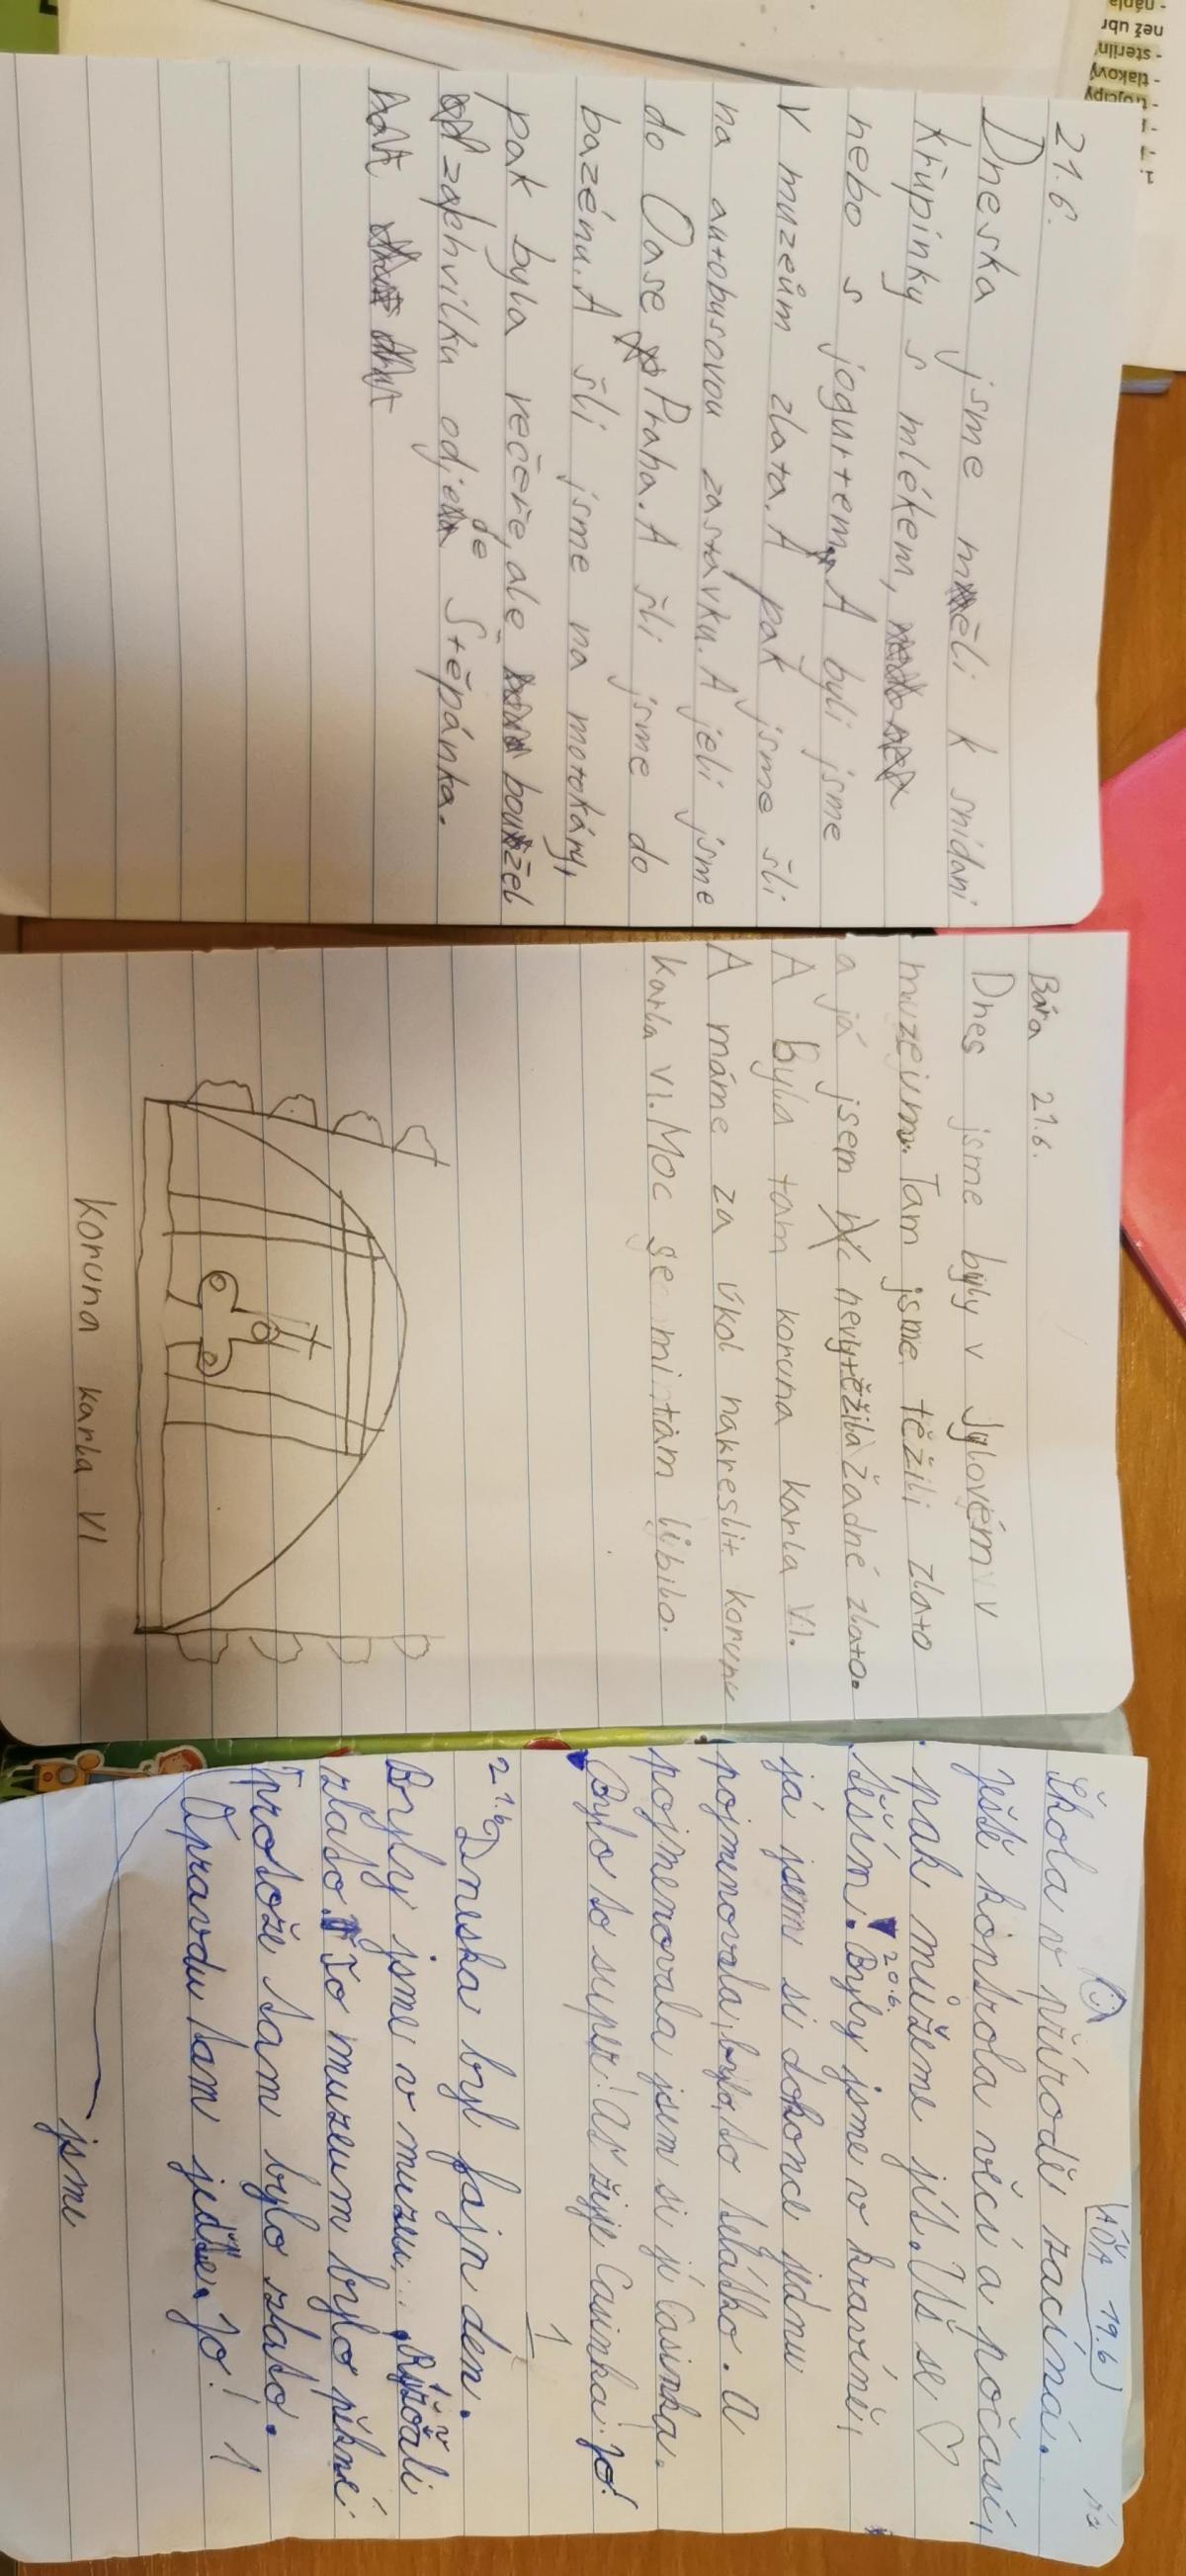 21.6.
Dneska jsme měli k snídani
křupinky s mlékem,
nebo s jogurtem. A byli jsme
v muzeům zlata. A pak jsme šli
na autobusovou zastávku. A jeli jsme
do Oase Praha. A šli jsme do
bazénu. A šli jsme na motokáry,
pak byla večeře, ale boužel
zachvilku odjede Štěpánka.
Bára 21.6.
Dnes jsme byly v Jylovém v
muzeium. Tam jsme těžili zlato
a já jsem nevytěžila žádné zlato.
A Byla tam koruna karla VI.
A máme za úkol nakreslit korunu
karla VI. Moc se mi tam líbilo.
koruna karla VI
19.6.
Škola v přírodě začíná.
Ještě kontrola věcí a počasí,
pak můžeme jít. Už se ♡
těším. 20.6. Byly jsme v kravíně,
já jsem si dokonce jednu
pojmenovala, bylo to telátko. A
pojmenovala jsem si jí Casinka.
Bylo to super! Ať žije Casinka! jo!
1
21.6 Dneska byl fajn den.
Byly jsme v muzeu. Rýžovali
zlato. To muzeum bylo pěkné
protože tam bylo zlato.
Opravdu tam jeďte. jo! 1
jsme
- tlakový
- sterilní
než ubr